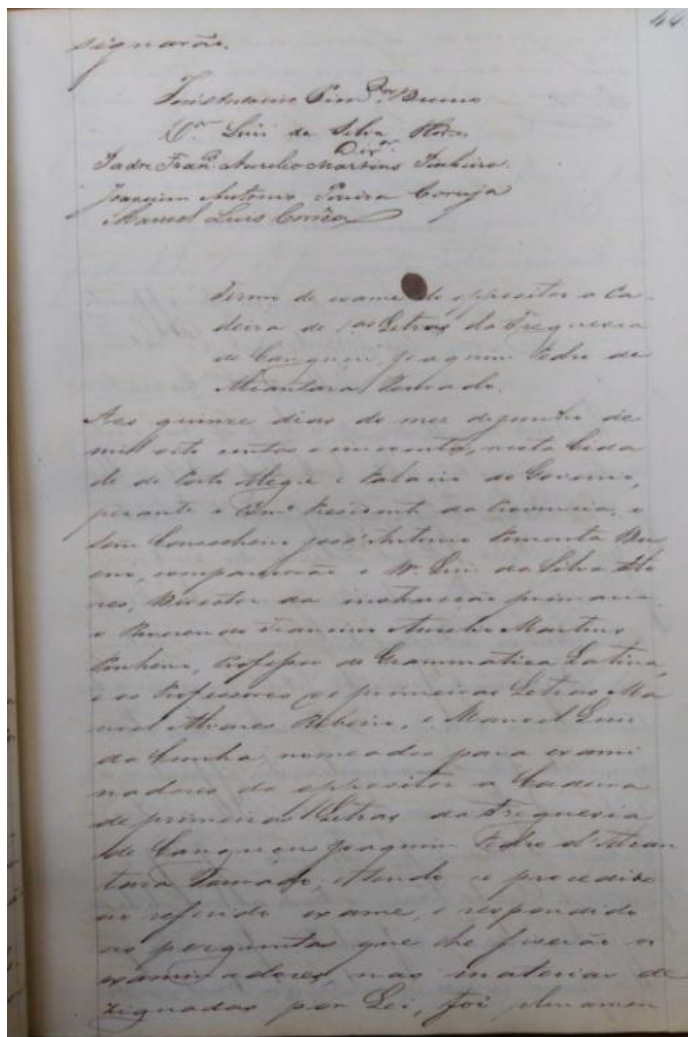 44
signarão.
José Antonio Pim.ta Bueno
Dr. Luis da Silva Flores
Dir.or
Padre Fran.co Aurelio Martins Pinheiro.
Joaquim Antonio Pereira Coruja
Manoel Luis Corrêa
Termo de exame do oppositor a Ca-
deira de 1.as Letras da Freguesia
de Canguçu Joaquim Pedro de
Alcantara
Aos quinze dias do mez de junho de
mil oito centos e cincoenta, nesta Cida
de de Porto Alegre e Palacio do Governo,
perante o Exmo Presidente da Provincia, o
Senr Conselheiro José Antonio Pimenta Bu
eno, comparecerão o Dr. Luis da Silva Flo
res, Director da instrucção primaria,
o Reverendo Francisco Aurelio Martins
Pinheiro, Professor de Grammatica Latina,
e os Professores de primeiras Letras Ma
noel Alvares Ribeiro, e Manoel Luis
da Cunha, nomeados para exami
nadores do oppositor a Cadeira
de primeiras Letras da Freguesia
de Canguçu Joaquim Pedro d'Alcan
tara e procedido
ao referido exame, e respondido
as perguntas que lhe fizerão os
examinadores, nas materias de
zignadas por Lei, foi plenamen